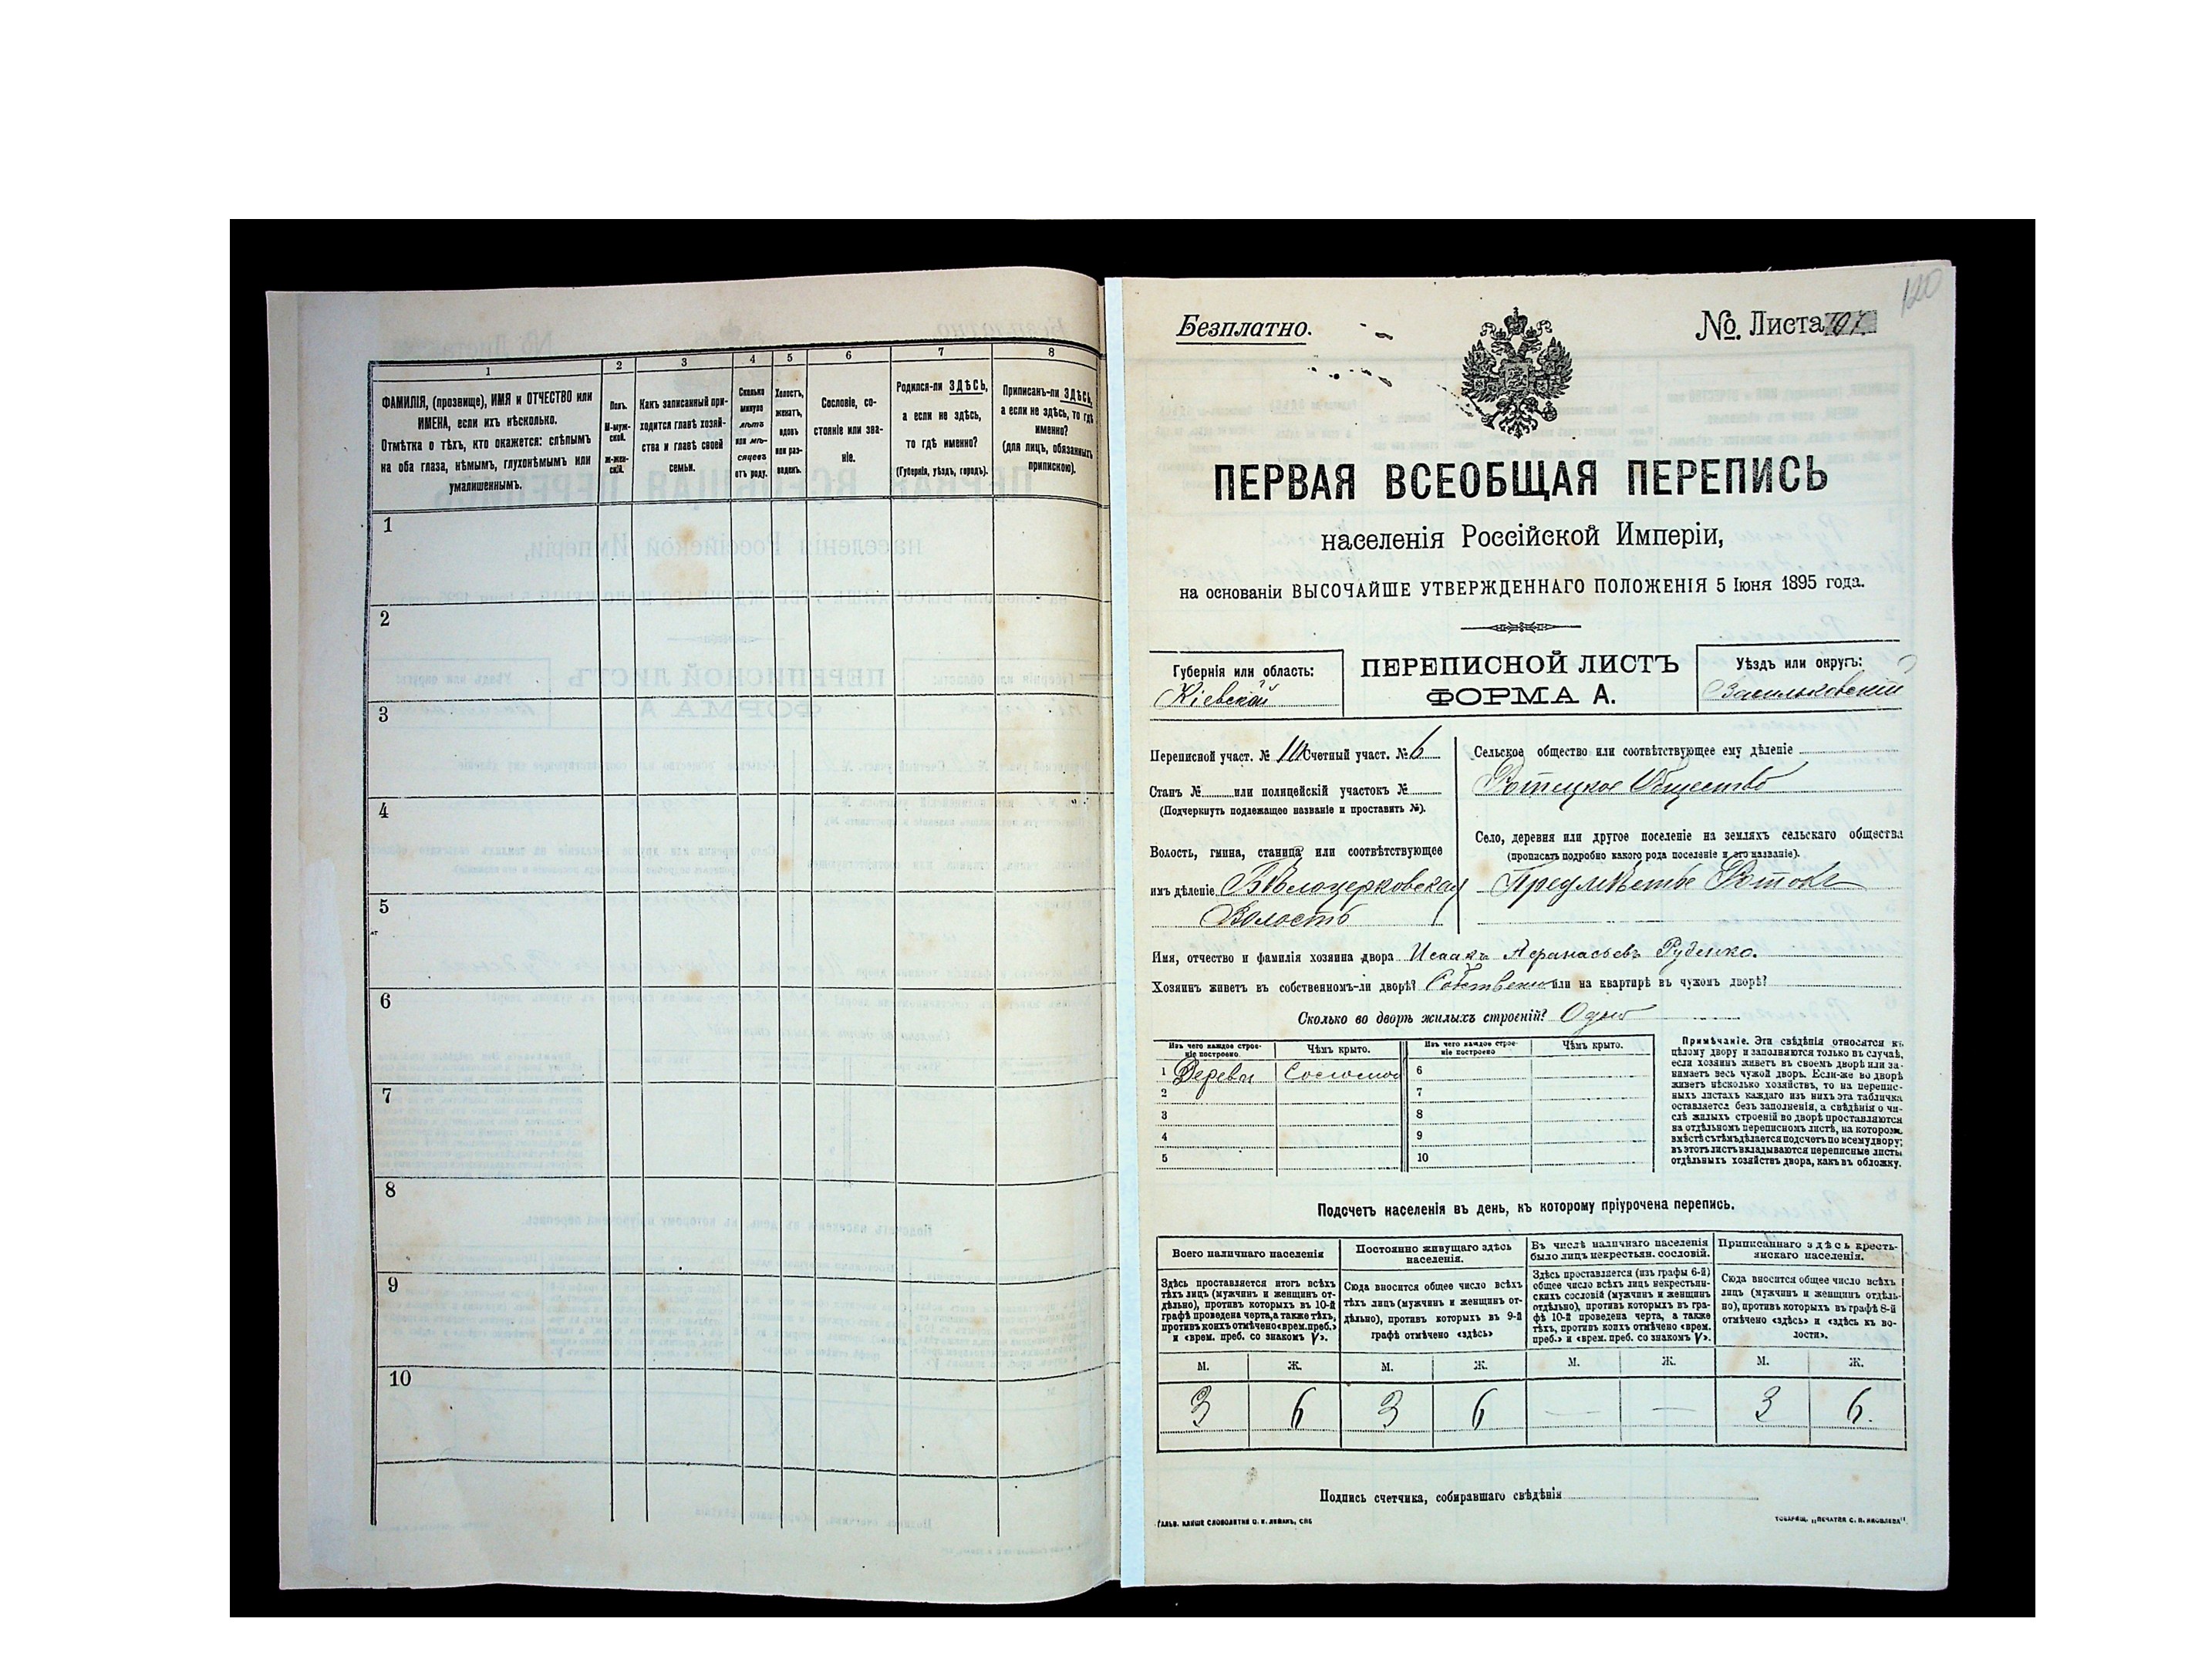 1 2 3 4 5 6 7 8
ФАМИЛІЯ, (прозвище), ИМЯ и ОТЧЕСТВО или
ИМЕНА, если ихъ нѣсколько.
Отмѣтка о тѣхъ, кто окажется: слѣпымъ
на оба глаза, нѣмымъ, глухонѣмымъ или
умалишеннымъ.
Полъ.
М-муж-
ской.
Ж-жен-
скій.
Какъ записанный при-
ходится главѣ хозяй-
ства и главѣ своей
семьи.
Сколько
минуло
лѣтъ
или мѣ-
сяцевъ
отъ роду.
Холостъ,
женатъ,
вдовъ
или раз-
веденъ.
Сословіе, со-
стояніе или зва-
ніе.
Родился-ли ЗДѢСЬ,
а если не здѣсь,
то гдѣ именно?
(Губернія, уѣздъ, городъ).
Приписанъ-ли ЗДѢСЬ,
а если не здѣсь, то гдѣ
именно?
(для лицъ, обязанныхъ
припискою).
1
2
3
4
5
6
7
8
9
10
120
Безплатно.
№ Листа
ПЕРВАЯ ВСЕОБЩАЯ ПЕРЕПИСЬ
населенія Россійской Имперіи,
на основаніи ВЫСОЧАЙШЕ УТВЕРЖДЕННАГО ПОЛОЖЕНІЯ 5 Іюня 1895 года.
Губернія или область:
Кіевской
ПЕРЕПИСНОЙ ЛИСТЪ
ФОРМА А.
Уѣздъ или округъ:
Васильковскій
Переписной участ. № Счетный участ. № 6
Станъ № или полицейскій участокъ №
(Подчеркнуть подлежащее названіе и проставить №).
Волость, гмина, станица или соотвѣтствующее
имъ дѣленіе Бѣлоцерковская
Волость
Сельское общество или соотвѣтствующее ему дѣленіе
Ротецкое Общество
Село, деревня или другое поселеніе на земляхъ сельскаго общества
(прописать подробно какого рода поселеніе и его названіе).
Предмѣстье Ротокъ
Имя, отчество и фамилія хозяина двора Исаакъ Афанасьевъ Руденко.
Хозяинъ живетъ въ собственномъ-ли дворѣ? Собственномъ или на квартирѣ въ чужомъ дворѣ?
Сколько во дворѣ жилыхъ строеній? Одно
Изъ чего каждое строе-
ніе построено.
Чѣмъ крыто.
Изъ чего каждое строе-
ніе построено
Чѣмъ крыто.
1 Дерева Соломой 6
2 7
3 8
4 9
5 10
Примѣчаніе. Эти свѣдѣнія относятся къ
цѣлому двору и заполняются только въ случаѣ,
если хозяинъ живетъ въ своемъ дворѣ или за-
нимаетъ весь чужой дворъ. Если-же во дворѣ
живетъ нѣсколько хозяйствъ, то на перепис-
ныхъ листахъ каждаго изъ нихъ эта табличка
оставляется безъ заполненія, а свѣдѣнія о чи-
слѣ жилыхъ строеній во дворѣ проставляются
на отдѣльномъ переписномъ листѣ, на которомъ
вмѣстѣ съ тѣмъ дѣлается подсчетъ по всему двору;
въ этотъ листъ вкладываются переписные листы
отдѣльныхъ хозяйствъ двора, какъ въ обложку.
Подсчетъ населенія въ день, къ которому пріурочена перепись.
Всего наличнаго населенія
Здѣсь проставляется итогъ всѣхъ
тѣхъ лицъ (мужчинъ и женщинъ от-
дѣльно), противъ которыхъ въ 10-й
графѣ проведена черта, а также тѣхъ,
противъ коихъ отмѣчено «врем. преб.»
и «врем. преб. со знакомъ V».
Постоянно живущаго здѣсь
населенія.
Сюда вносится общее число всѣхъ
тѣхъ лицъ (мужчинъ и женщинъ от-
дѣльно), противъ которыхъ въ 9-й
графѣ отмѣчено «здѣсь»
Въ числѣ наличнаго населенія
было лицъ некрестьян. сословій.
Здѣсь проставляется (изъ графы 6-й)
общее число всѣхъ лицъ некрестьян-
скихъ сословій (мужчинъ и женщинъ
отдѣльно), противъ которыхъ въ гра-
фѣ 10-й проведена черта, а также
тѣхъ, противъ коихъ отмѣчено «врем.
преб.» и «врем. преб. со знакомъ V».
Приписаннаго здѣсь кресть-
янскаго населенія.
Сюда вносится общее число всѣхъ
лицъ (мужчинъ и женщинъ отдѣль-
но), противъ которыхъ въ графѣ 8-й
отмѣчено «здѣсь» и «здѣсь къ во-
лости».
М. Ж. М. Ж. М. Ж. М. Ж.
3 6 3 6 — — 3 6.
Подпись счетчика, собиравшаго свѣдѣнія
ТОВАРИЩ. „ПЕЧАТНЯ С. П. ЯКОВЛЕВА“.